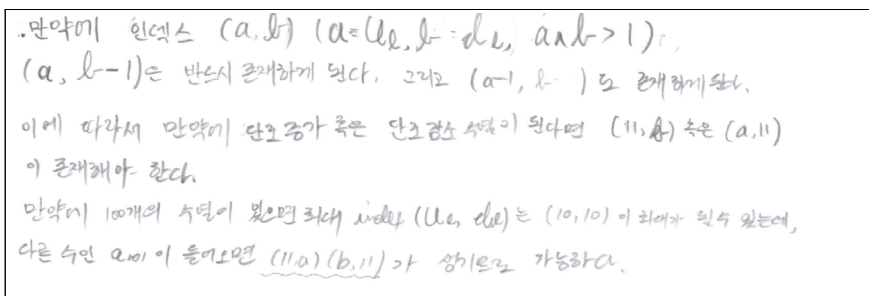 .만약에 인덱스 (a, b) (a=Ue, b=de, a∧b>1)
(a, b-1)은 반드시 존재하게 된다. 그리고 (a-1, b ) 도 존재하게 된다.
이에 따라서 만약에 단조증가 혹은 단조감소 수열이 된다면 (11, b) 혹은 (a, 11)
이 존재해야 한다.
만약에 100개의 수열이 있으면 최대 index (Ue, de)는 (10,10) 이 최대가 될수 있는데,
다른 수인 a101 이 들어오면 (11,a) (b,11) 가 생기므로 가능하다.